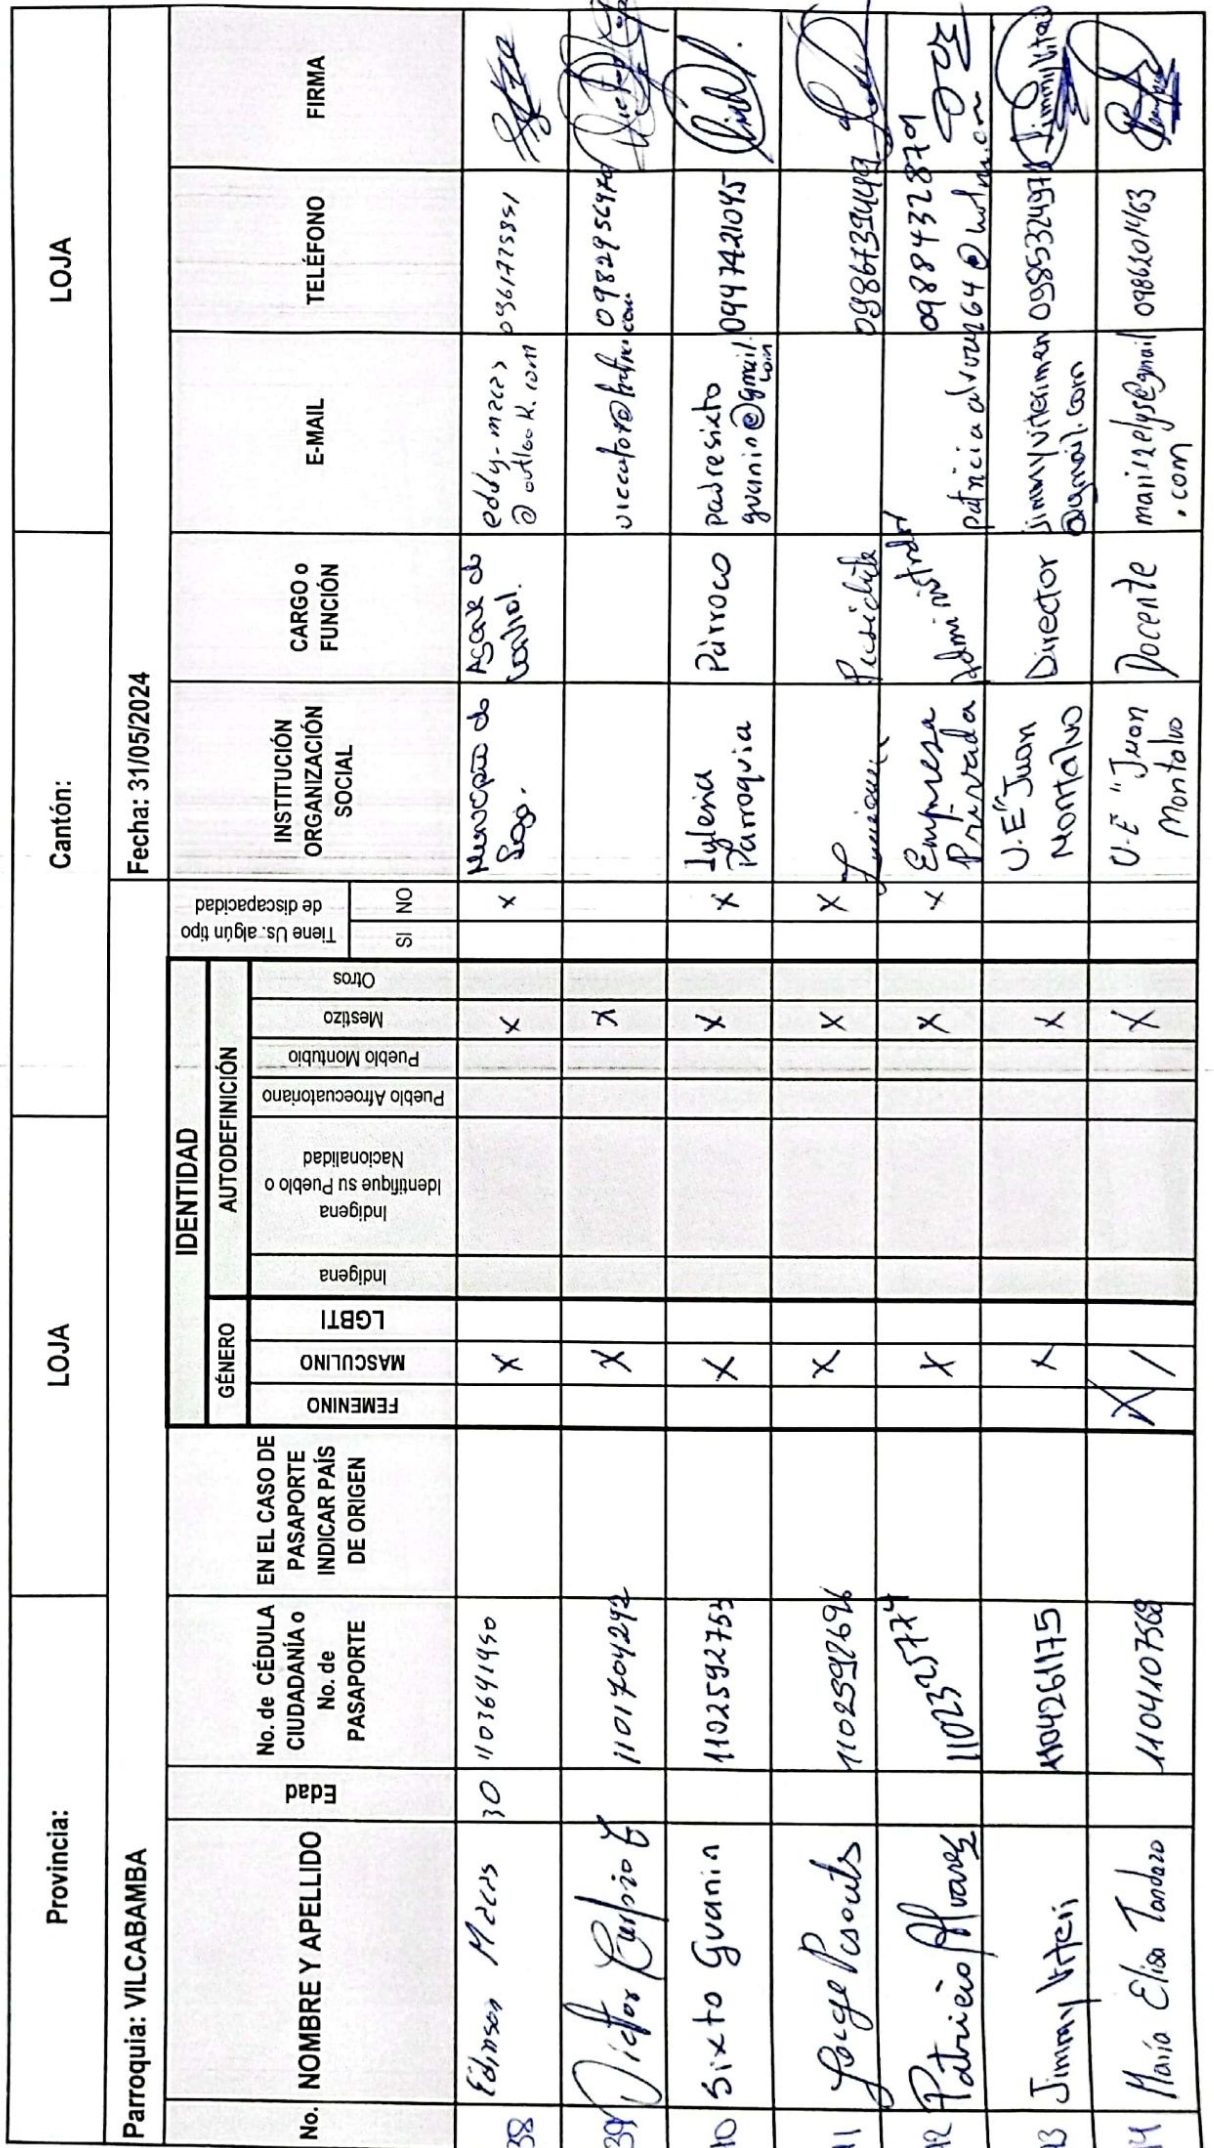 Provincia: LOJA Cantón: LOJA
Parroquia: VILCABAMBA Fecha: 31/05/2024
No. NOMBRE Y APELLIDO Edad
No. de CÉDULA
CIUDADANÍA o
No. de
PASAPORTE
EN EL CASO DE
PASAPORTE
INDICAR PAÍS
DE ORIGEN
IDENTIDAD
GÉNERO
FEMENINO
MASCULINO
LGBTI
AUTODEFINICIÓN
Indigena
Indigena
Identifique su Pueblo o
Nacionalidad
Pueblo Afroecuatoriano
Pueblo Montubio
Mestizo
Otros
Tiene Us. algún tipo
de discapacidad
SI NO
INSTITUCIÓN
ORGANIZACIÓN
SOCIAL
CARGO o
FUNCIÓN
E-MAIL
TELÉFONO
FIRMA
38 Edinson Macas 30 1103691490 X X X
Municipio de
Loja.
Agente de
Control.
eddy-macas
@outlook.com
39 Victor Carpio 1101704292 X X
0982956979
40 Sixto Guanin 1102592753 X X X
Iglesia
Parroquia
Párroco
padresixto
guanin@gmail.
com
0997421045
41 Jorge 1102592696 X X X
Presidente
42 Patricio Alvarez 1102325774 X X X
Empresa
Privada
Administrador
0988432879
43 Jimmy Viteri 1104261175 X X
U.E "Juan
Montalvo
Director
jimmyviterimen
@gmail.com
44 María Elisa Tandazo 1104107568 X / /
U.E "Juan
Montalvo
Docente
.com
0986201463